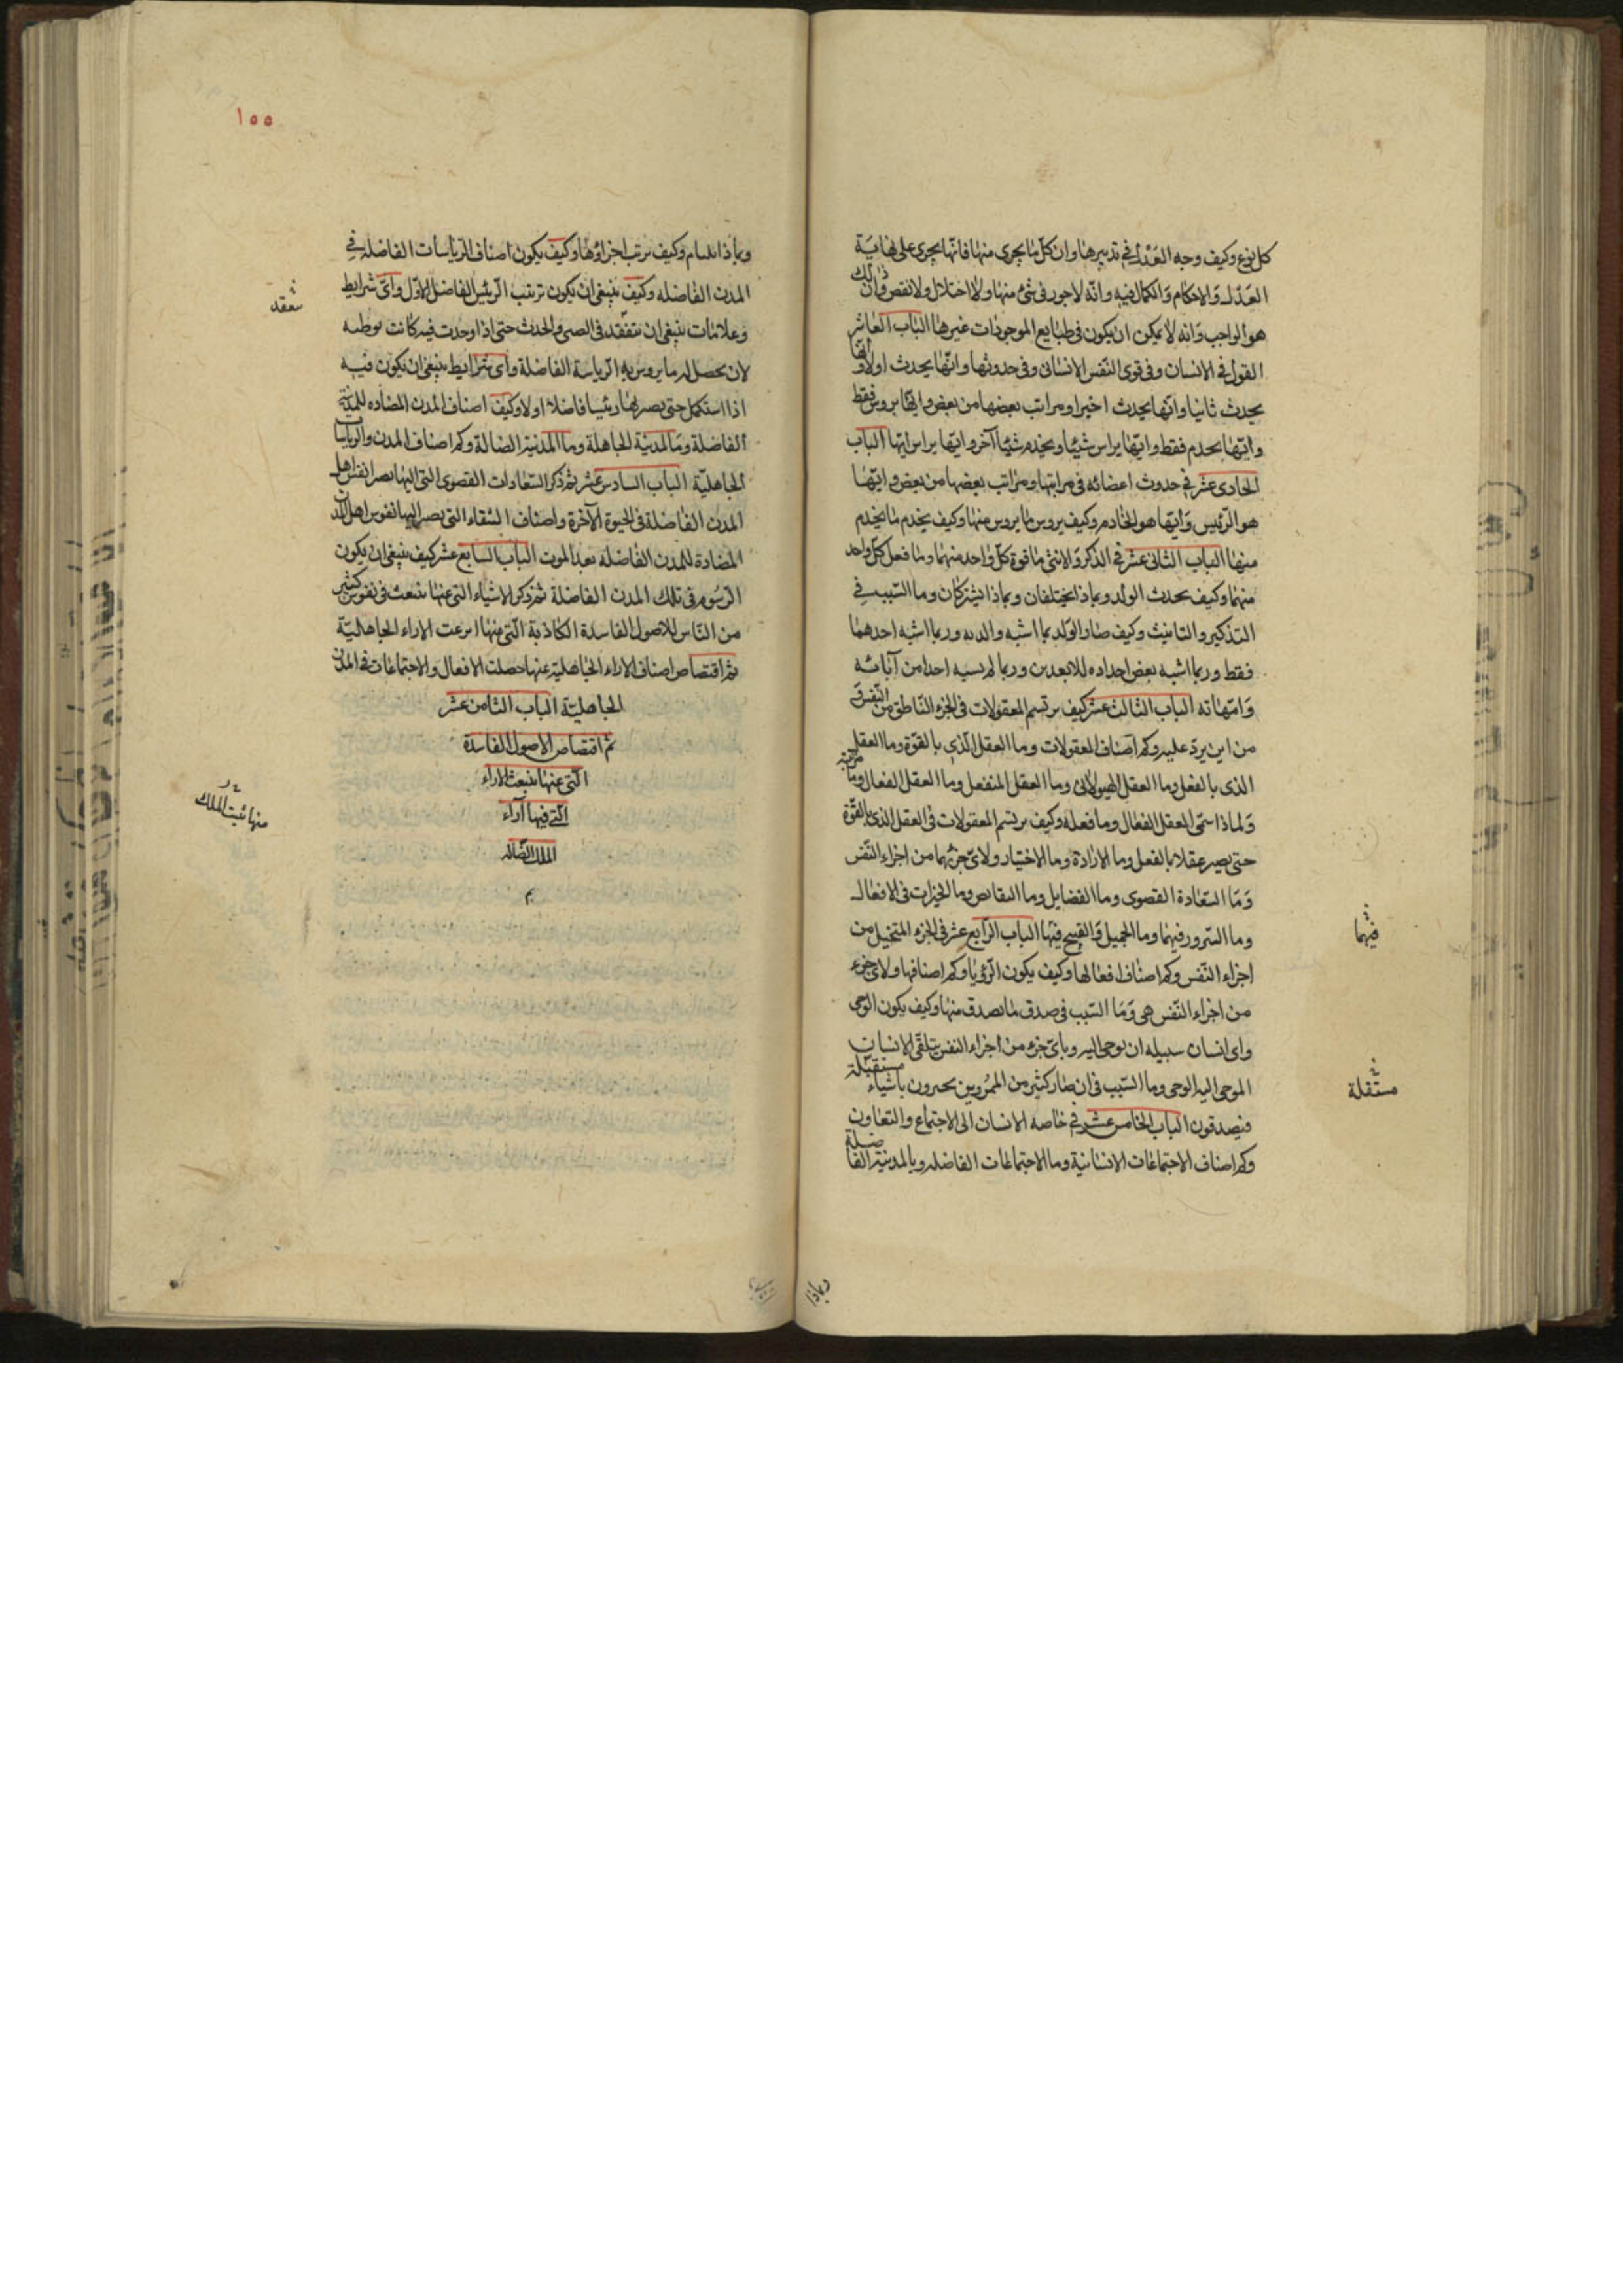 كل نوع وكيف وجه العدل في تدبيرها وان كل ما يجرى منها فانها يجرى على نهاية
العدل والاحكام والكمال فيه وانه لا جور فى شئ منها ولا اختلال ولا نقص وان ذلك
هو الواجب وانه لا يمكن ان يكون فى طبايع الموجودات غيرها الباب العاشر
القول في الانسان وفى قوى النفس الانسانى وفى حدوثها وانها يحدث اولا وايها
يحدث ثانيا وانها يحدث اخيرا ومراتب بعضها من بعض وايها يروس فقط
وايها يخدم فقط وايها يراس شيئا ويخدم شيئا آخر وايها يراس ايها الباب
الحادى عشر في حدوث اعضائه فى مراتبها ومراتب بعضها من بعض وايها
هو الرئيس وايها هو الخادم وكيف يروس ما يروس منها وكيف يخدم ما يخدم
منها الباب الثانى عشر في الذكر والانثى ما قوة كل واحد منهما وما فعل كل واحد
منهما وكيف يحدث الولد وبماذا يختلفان وبماذا يشتركان وما السبب في
التذكير والتانيث وكيف صار الولد بما اشبه والديه وربما اشبه احدهما
فقط وربما اشبه بعض اجداده للابعدين وربما لم يسبه احدا من آبائه
وامهاته الباب الثالث عشر كيف يرتسم المعقولات فى الجزء الناطق من النفس فى
من اين يرد عليه وكم اصناف المعقولات وما العقل الذى بالقوة وما العقل
الذى بالفعل وما العقل الهيولانى وما العقل المنفعل وما العقل الفعال وما مرتبته
ولماذا سمى العقل الفعال وما فعله وكيف يرتسم المعقولات فى العقل الذى بالقوة
حتى يصير عقلا بالفعل وما الارادة وما الاختيار ولاى جزئهما من اجزاء النفس
وما السعادة القصوى وما الفضايل وما النقائص وما الخيرات فى الافعال
وما السرور فيهما وما الجميل والقبيح فيها الباب الرابع عشر فى الجزء المتخيل من
اجزاء النفس وكم اصناف افعالها وكيف يكون الرؤيا وكم اصنافها ولاى جزء
من اجزاء النفس هى وما السبب فى صدق ما يصدق منها وكيف يكون الوحى
واى انسان سبيله ان يوحى اليه وباى جزء من اجزاء النفس يتلقى الانسان
الموحى اليه الوحى وما السبب فى ان صار كثير من الممرورين يخبرون باشياء مستقبلة
فيصدقون الباب الخامس عشر في خاصه الانسان الى الاجتماع والتعاون
وكم اصناف الاجتماعات الانسانية وما الاجتماعات الفاضله وبالمدينة الفاضلة
فيهما
مستقلة
وبماذا
١٥٥
وبماذا يلتيام وكيف يرتب اجزاؤها وكيف يكون اصناف الرياسات الفاضله في
المدن الفاضله وكيف ينبغى ان يكون ترتيب الرئيس الفاضل الاول واى شرايط
وعلامات ينبغى ان يتفقد فى الصبى والحدث حتى اذا وجدت فيه كانت توطئه
لان يحصل له ما يروس به الرياسة الفاضلة واى شرايط ينبغى ان يكون فيه
اذا استكمل حتى يصير بها رئيسا فاضلا اولا وكيف اصناف المدن المضاده للمدينة
الفاضلة وما المدينة الجاهلة وما المدنية الضالة وكم اصناف المدن والرياسات
الجاهلية الباب السادس عشر ثم ذكر السعادات القصوى التى اليها يصير انفس اهل
المدن الفاضلة فى الحيوة الآخرة واصناف الشقاء التى يصير اليها نفوس اهل المدن
المضادة للمدن الفاضله بعد الموت الباب السابع عشر كيف ينبغى ان يكون
الرسوم فى تلك المدن الفاضلة ثم ذكر الاشياء التى عنها ينبعث فى نفوس كثير
من الناس للاصول الفاسدة الكاذبة التى منها انتزعت الاراء الجاهلية
ثم اقتصاص اصناف الاراء الجاهلية عنها حصلت الافعال والاجتماعات في المدن
الجاهلية الباب الثامن عشر
ثم اقتصاص الاصول الفاسدة
التى عنها ينبعث الاراء
التى فيها آراء
الملل الضاله
م